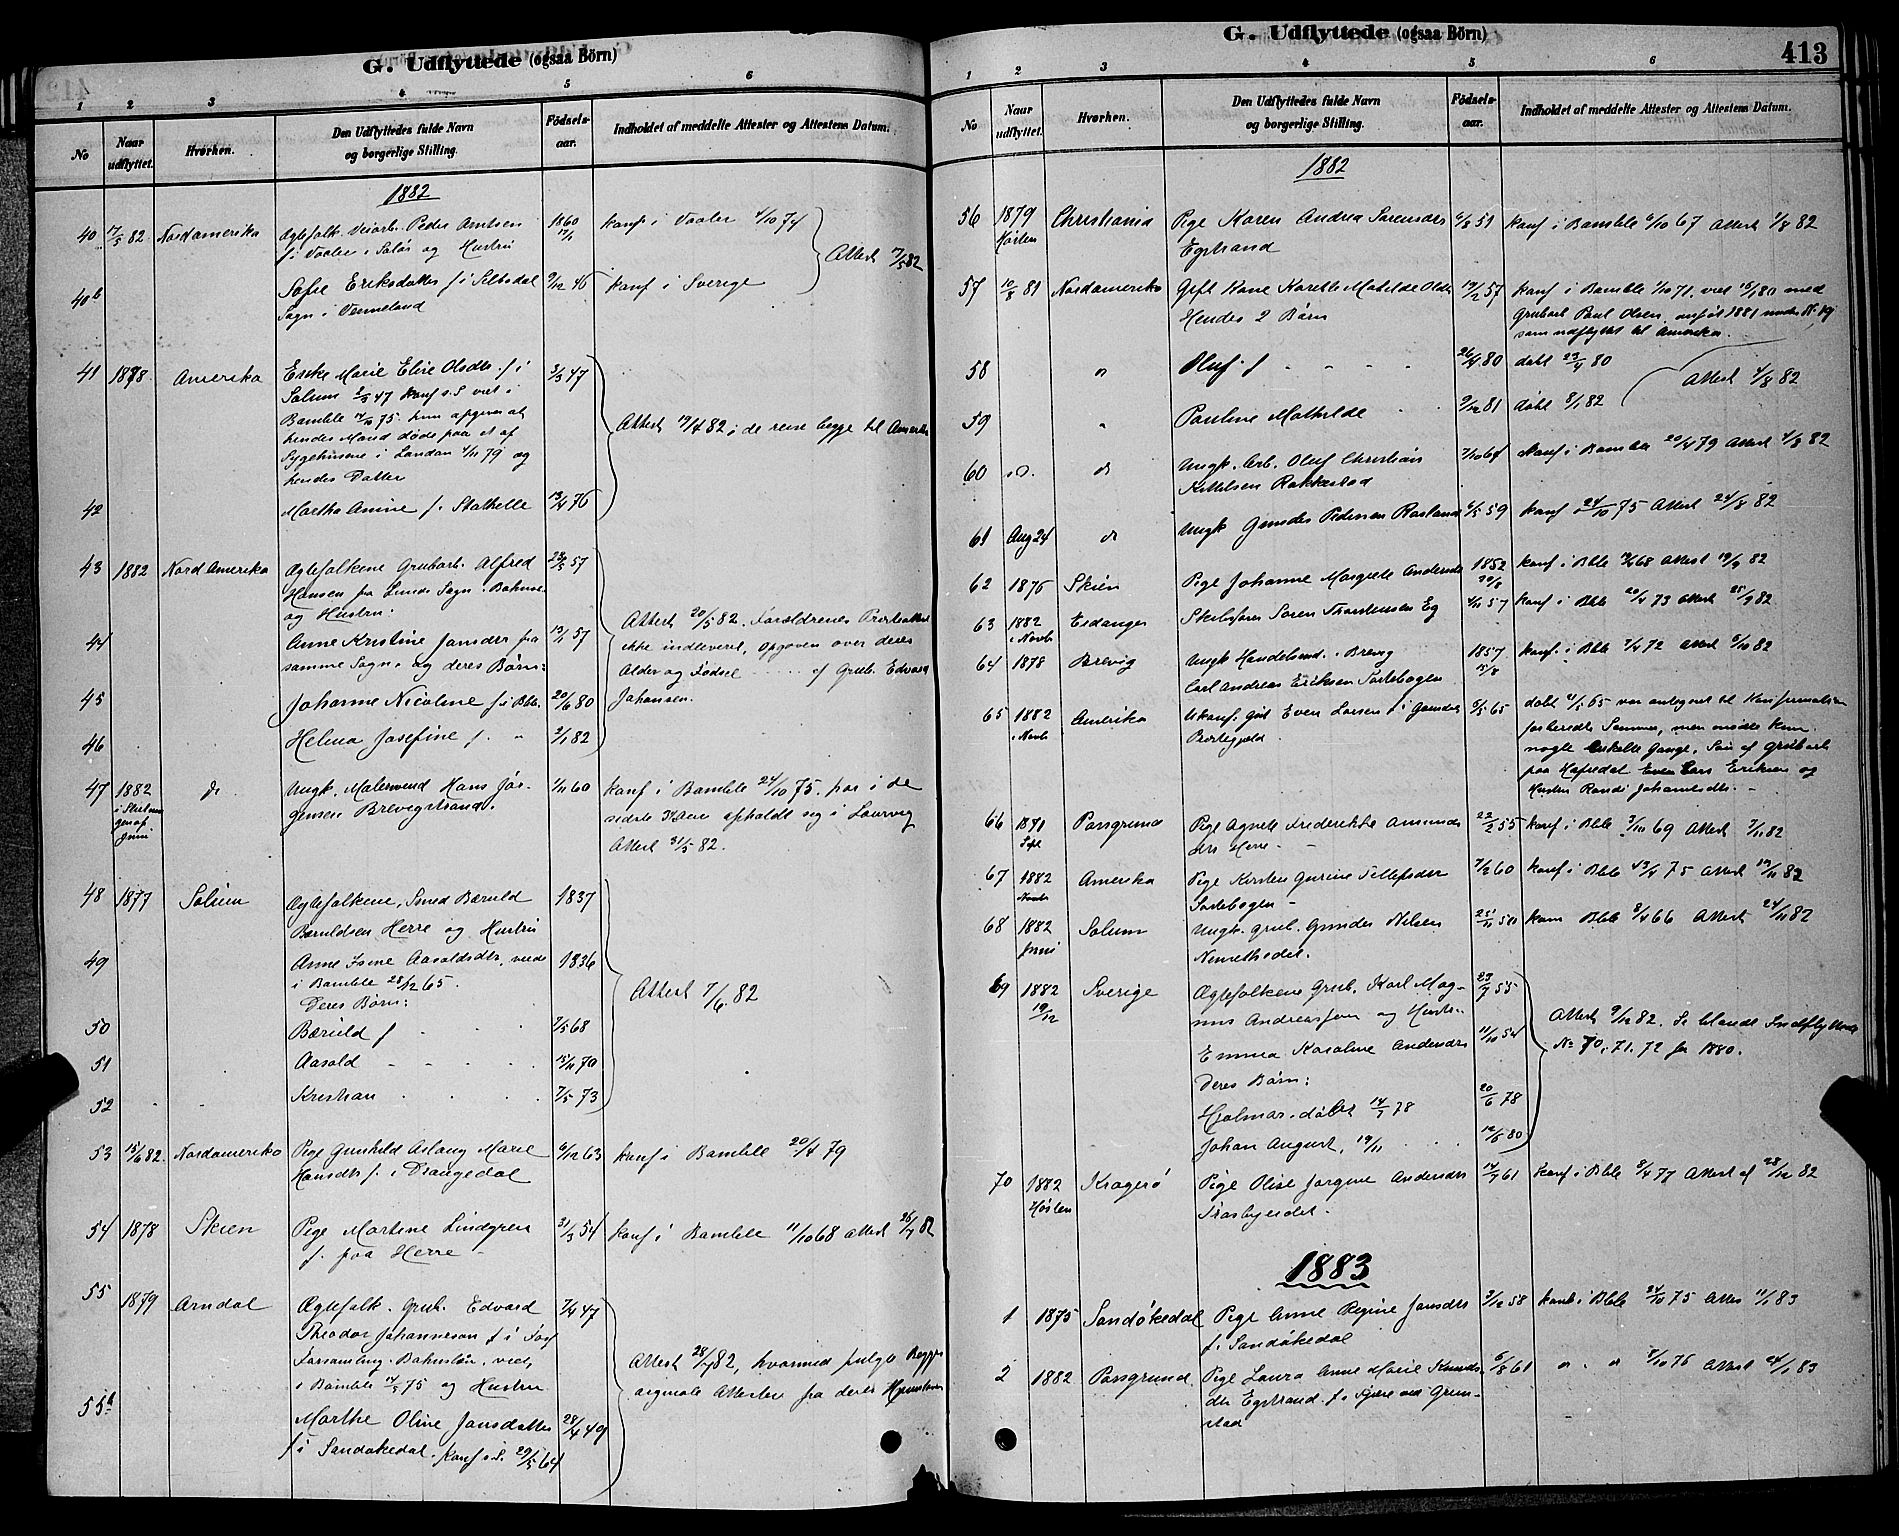 G. Udflyttede (ogsaa Börn)
1 2 3 4 5 6
No
Naar udflyttet.
Hvorhen.
Den Udflyttedes fulde Navn og borgerlige Stilling.
Födsels-aar.
Indholdet af meddelte Attester og Attestens Datum.
1882
40 17/5 82 Nordamerika Ægtefolk Peder Arntsen 1860 17/1 konf i Vaaler 4/10 74
f. i Vaaler i Solør og Hustru
Attest 17/5 82
40b Sofie Eriksdatter f i 9/12 46 konf i Sverige
Sogn i Vermeland
41 1878 Amerika Enke Marie Elise Olsdtr f i 2/3 47
Solum 2/3 47 konf s. S viet i
Bamble 75. hun opgiver at
hendes Mand døde paa et af
Sygehusene i London 4/11 79 og
hendes Datter
Attest 19/4 82, de reise begge til Amerika
42 Martha Amine f. Stathelle 13/4 76
43 1882 Nord Amerika Ægtefolkene Grubarb. Alfred 23/5 57
Hansen fra Sogn i Bahus
og Hustru:
44 Anne Kristine Jansdtr fra 13/1 57
samme Sogn, og deres Børn:
Attest 20/5 82. Forældrenes
ikke indleveret, opgaven over deres
Alder og Fødsel af Grub. Edvard
Johansen.
45 Johanne Nicoline f i Bble 20/6 80
46 Helma Josefine f. " 2/1 82
47 1882 do Ungk. Malersvend Hans Jør- 1/11 60 konf i Bamble 24/10 75. har i de
gensen Brevigstrand. sidste Aar opholdt sig i Laurvig
Attest 31/5 82.
48 1877 Solum Ægtefolkene, Smed Bæruld 1837
Bæruldsen Herre og Hustru
49 Anne Aasoldsdtr, viede 1836
i Bamble 28/12 65.
Deres Børn:
Attest 7/6 82
50 Bæruld f 7/5 68
51 Aasold 15/11 70
52 Kristian 7/5 73
53 15/6 82. Nordamerika Pige Gunhild Aslaug Marie 6/12 63 konf i Bamble 20/4 79
Hansdtr f. i Drangedal
54 1878 Skien Pige Martine Lindgren 31/3 54 konf i Bamble 11/10 68 Attest 26/7 82
f. paa Herre
55 1879 Arndal Ægtefolk. Grub. Edvard 7/4 47
Theodor Johannesson f i Foss
Forsamling. Bahuslän, viet,
i Bamble 75 og Hustru
Attest 28/7 82, hvormed fulgte Begges
orginale Attester fra deres Hjemsteder
55b Marthe Oline Jansdatter 28/4 49
f i Sandøkedal. Konf s. S. 29/5 64
G. Udflyttede (ogsaa Börn)
413
1 2 3 4 5 6
No
Naar udflyttet.
Hvorhen.
Den Udflyttedes fulde Navn og borgerlige Stilling.
Födsels-aar.
Indholdet af meddelte Attester og Attestens Datum.
1882
56 1879 Høsten Christiania Pige Karen Andrea Sørensdtr 6/8 51 konf i Bamble 6/10 67 Attest 1/8 82
Egstrand
57 10/8 81 Nordamerika Gift Kone Karette Matilde Olsdtr 19/2 57 konf i Bamble 1/10 71. viet 80 med
Hendes 2 Børn Grubarb Paul Olsen, anført 1881 under No 19
som udflyttet til Amerika.
58 " Oluf f 26/4 80 døbt 23/4 80
Attest 4/8 82
59 " Pauline Mathilde 9/12 81 døbt 8/1 82
60 do do Ungk. Arb. Oluf Christian 7/10 64 konf i Bamble 20/4 79 Attest 4/8 82
Kittelsen Rakkestad
61 Aug 24 do Ungk Gunder Pedersen Rosland 4/5 59 konf 24/10 75 Attest 24/8 82
62 1876 Skien Pige Johanne Margrete Andersdtr 1852 konf i Bble 68 Attest 19/9 82
63 1882 i Novb Eidanger Skibsfører Søren Thorstensen Eg 4/11 57 konf i Bble 20/4 73 Attest 25/9 82
64 1878 Brevig Ungk Handelsmd. i Brevig 1857 15/8 konf i Bble 7/4 72 Attest 6/10 82
Carl Andreas Eriksen Sortebogen
65 1882 i Novb Amerika Ukonf. gut Even Larsen f i Gjerdal 5/5 65 døbt 65 var antegnet til Konfirmation
Præstegjeld. forberedtes Sommer, men mødte kun
nogle enkelte Gange. Søn af Grubarb
paa Hafredal Even Lars Eriksen og
Hustru Randi Johannesdtr. -
66 1871 Sept Porsgrund Pige Agnete Frederikke Amunds 22/2 55 konf i Bble 3/10 69 Attest 7/11 82
dtr Herre
67 1882 Novb Amerika Pige Kirsten Gurine Tellefsdtr 7/12 60 konf i Bble 75 Attest 19/11 82
Sortebogen
68 1882 Juni Solum Ungk. grub. Gunder Nilsen 50 konf Bble 8/4 66 Attest 24/11 82
69 1882 19/12 Sverige Ægtefolkene Grub. Karl Mag- 23/7 55
nus Andreassen og Hustru
Emma Karoline Andersdtr 11/10 54
Attest 9/12 82. Se blandt Indflyttede
No 70, 71. 72 for 1880.
Deres Børn:
Hjalmar. døbt 14/7 78 20/6 78
Johan August, 19/11 80
70 1882 Høsten Kragerø Pige Olise Jørgine Andersdtr 14/7 61 Konf i Bble 8/4 77 Attest af 28/12 82
Trosbyeidet.
1883
1 1875 Sandøkedal Pige Anne Regine Jansdtr 3/12 58 konf i Bble 24/10 75 Attest 11/1 83
f. Sandøkedal
2 1882 Porsgrund Pige Laura Anne Marie Knuds 6/8 61 " " 8/10 76 Attest 24/1 83
dtr Egstrand. f. Fjære ved Grim-
stad